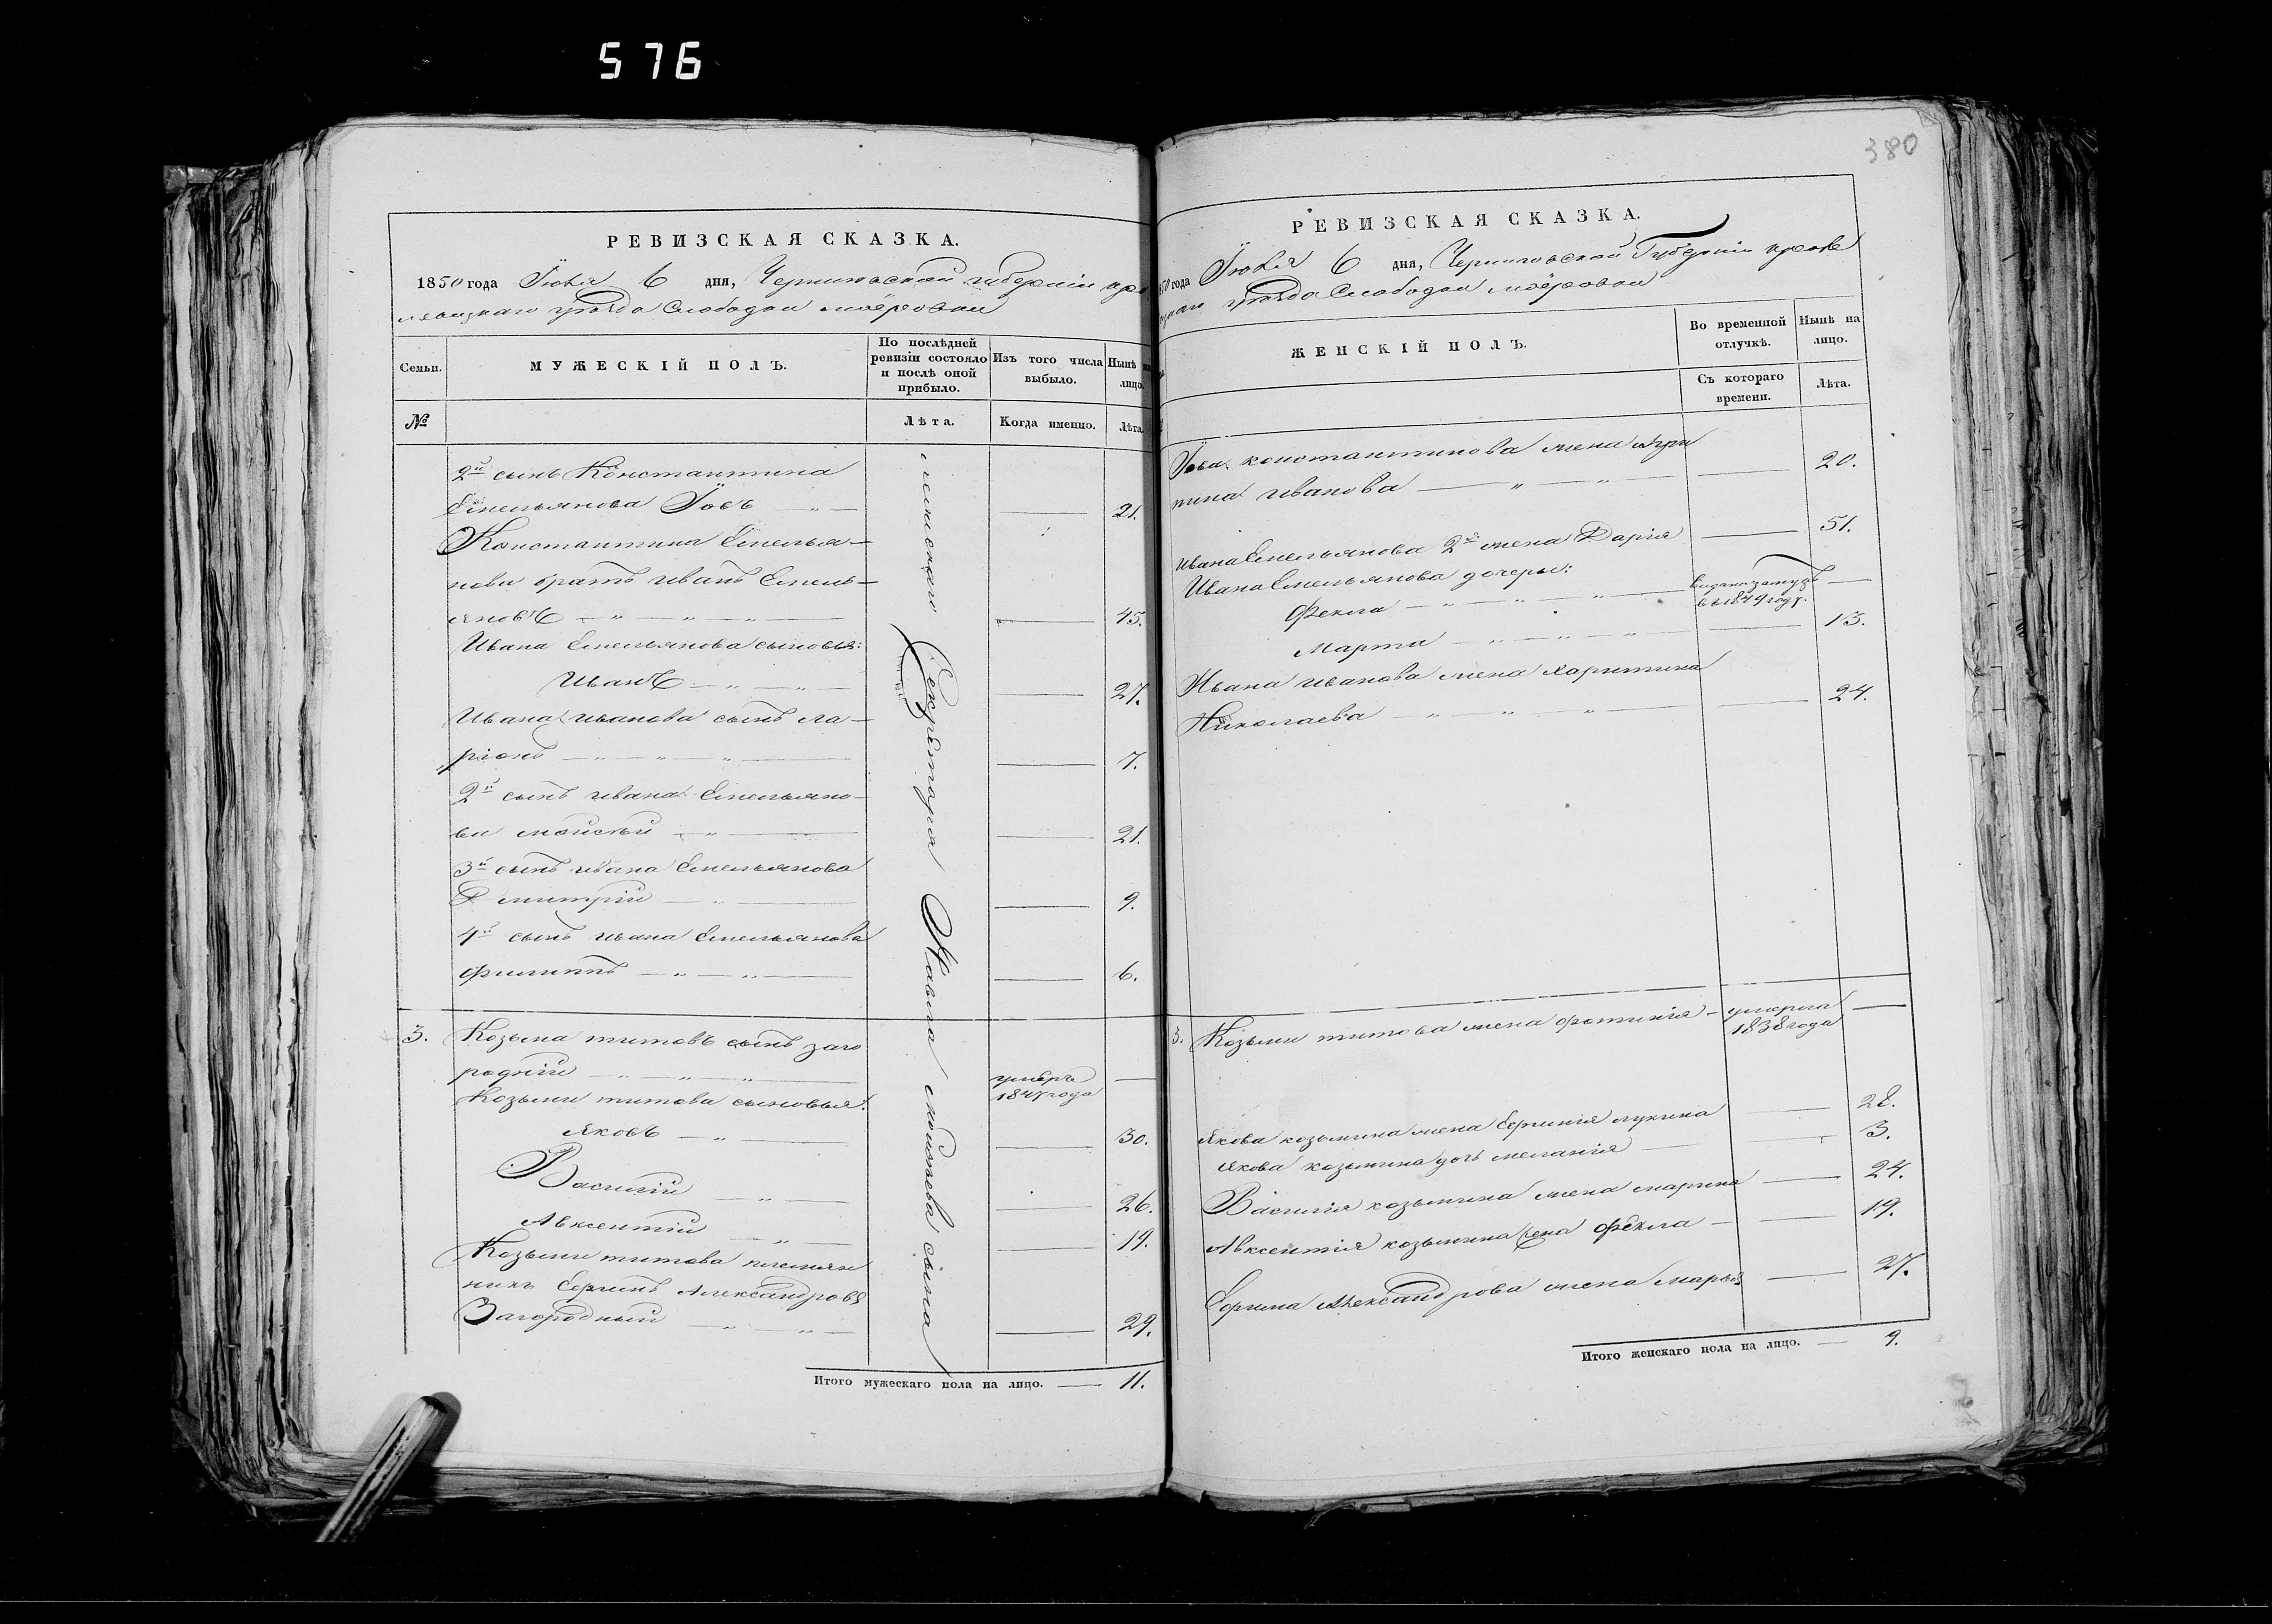 576
380
РЕВИЗСКАЯ СКАЗКА.
1850 года Июня 6 дня, Черниговской губерніи кро
левецкаго уѣзда Слободки
Семьи.
МУЖЕСКІЙ ПОЛЪ.
По послѣдней ревизіи состояло и послѣ оной прибыло.
Изъ того числа выбыло.
Нынѣ на лицо.
№
Лѣта.
Когда именно.
Лѣта.
2й сынъ Константина
Емельянова Іовъ 21.
Константина Емелья-
нова братъ Иванъ Емель-
яновъ 45.
Ивана Емельянова сыновья:
Иванъ 27.
Ивана Иванова сынъ Ла-
ріонъ 7.
2й сынъ Ивана Емельяно-
ва Мойсѣй 21.
3й сынъ Ивана Емельянова
Дмитрій 9.
4й сынъ Ивана Емельянова
Филиппъ 6.
3. Козьма Титовъ сынъ Заго
родній умеръ 1847 года
Козьмы Титова сыновья:
Яковъ 30.
Василій 26.
Авксентій 19.
Козьмы Титова племян
никъ Ефимъ Александровъ
Загородный 29.
Секретаря Павла сына
Итого мужескаго пола на лицо. 11.
РЕВИЗСКАЯ СКАЗКА.
1850 года Июня 6 дня, Черниговской Губерніи кроле
уѣзда Слободки
ЖЕНСКІЙ ПОЛЪ.
Во временной отлучкѣ.
Нынѣ на лицо.
Съ котораго времени.
Лѣта.
Іова Константинова жена Агри
пина Иванова 20.
Ивана Емельянова 2я жена Дарія 51.
Ивана Емельянова дочеры:
Фекла выдана замужъ въ 1849 году.
Марта 13.
Ивана Иванова жена Харитина
Николаева 24.
3. Козьмы Титова жена Фотинія умерла 1838 года
Якова Козьмина жена Ефимія Лукина 28.
Якова Козьмина дочь Меланія 3.
Василія Козьмина жена Марина 24.
Авксентія Козьмина жена Фекла 19.
Ефима Александрова жена Марья 27.
Итого женскаго пола на лицо. 9.